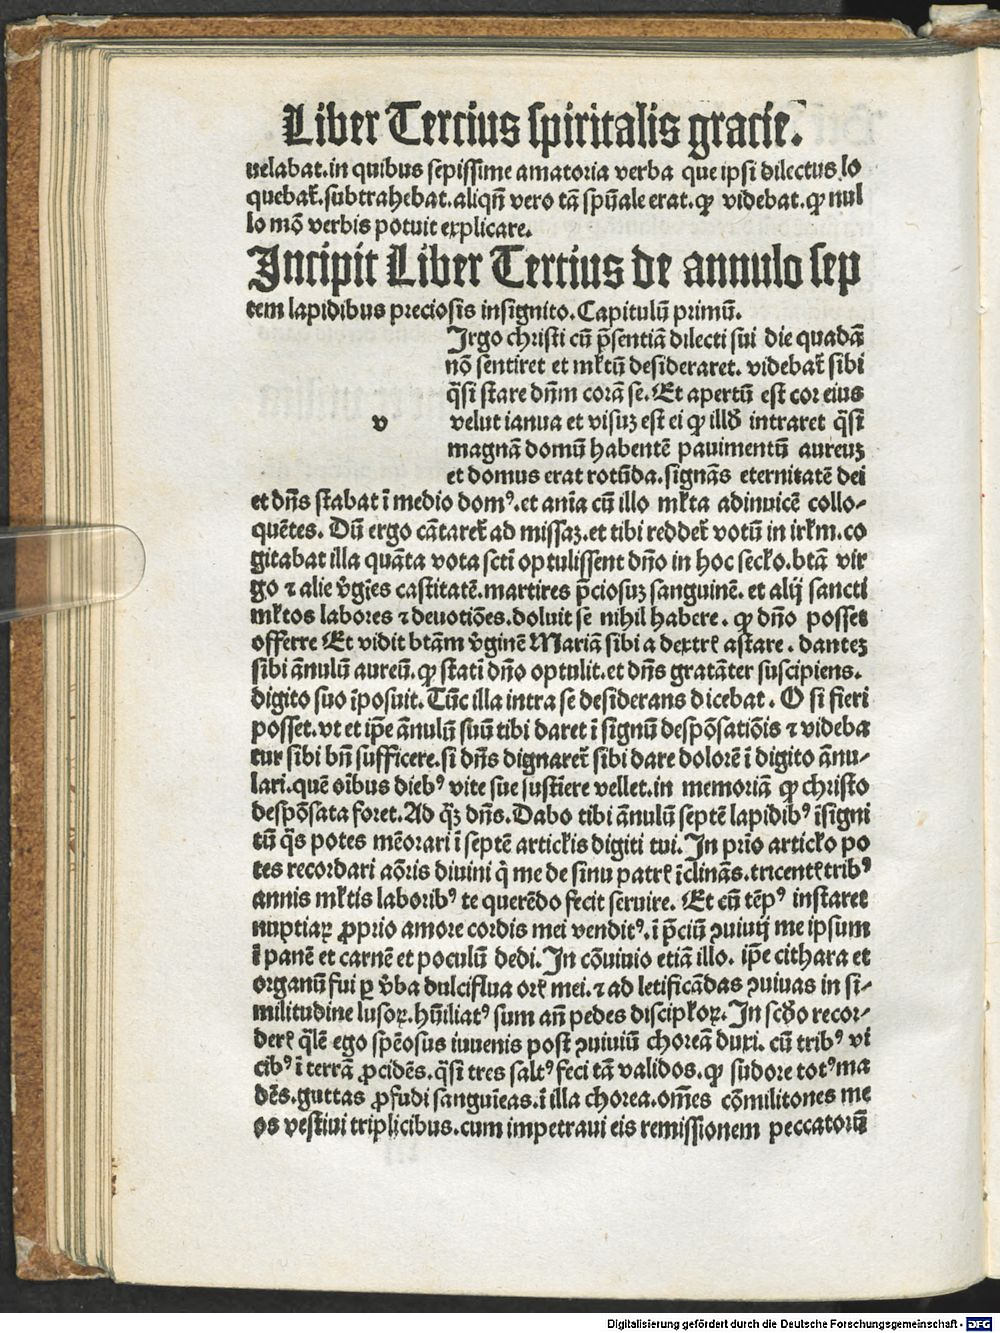 Liber Tercius spiritalis gracie.
uelabat. in quibus sepissime amatoria verba que ipsi dilectus lo
quebat᷑. subtrahebat. aliqñ vero tā spūale erat. ꝙ videbat. ꝙ nul
lo mō verbis potuit explicare.
Incipit Liber Tertius de annulo sep
tem lapidibus preciosis insignito. Capitulū primū.
Irgo christi cū p̄sentiā dilecti sui die quadā
nō sentiret et ml̓tū desideraret. videbat᷑ sibi
q̄si stare dn̄m corā se. Et apertū est cor eius
v velut ianua et visuꝫ est ei ꝙ illo intraret q̄si
magnā domū habentē pauimentū aureuꝫ
et domus erat rotūda. signās eternitatē dei
et dn̄s stabat ī medio domꝰ. et anīa cū illo ml̓ta adinuicē collo-
quētes. Dū ergo cātaret᷑ ad missaꝫ. et tibi reddet᷑ votū in irl̓m. co
gitabat illa quāta vota scti optulissent dn̄o in hoc secl̓o. btā vir
go ⁊ alie v̄gīes castitatē. martires p̄ciosuꝫ sanguinē. et alij sancti
ml̓tos labores ⁊ deuotiōes. doluit se nihil habere. ꝙ dn̄o posset
offerre Et vidit btām v̄ginē Mariā sibi a dextrꝭ astare. danteꝫ
sibi ānulū aureū. ꝙ statī dn̄o optulit. et dn̄s gratāter suscipiens.
digito suo īposuit. Tūc illa intra se desiderans dicebat. O si fieri
posset. vt et ip̄e ānulū suū tibi daret ī signū despōsatiōis ⁊ videba
tur sibi bn̄ sufficere. si dn̄s dignaret᷑ sibi dare dolorē ī digito ānu-
lari. quē oībus diebꝰ vite sue sustīere vellet. in memoriā ꝙ christo
despōsata foret. Ad q̄ꝫ dn̄s. Dabo tibi ānulū septē lapidibꝰ īsigni
tū q̄s potes mēorari ī septē articl̓is digiti tui. In prīo articl̓o po
tes recordari aōris diuini q̄ me de sinu patrꝭ īclināS. tricentꝭ tribꝰ
annis ml̓tis laboribꝰ te querēdo fecit seruire. Et cū tēpꝰ instaret
nuptiaꝝ ꝓprio amore cordis mei venditꝰ. ī p̄ciū ꝯuiuij me ipsum
ī panē et carnē et poculū dedi. In cōuiuio etiā illo. ip̄e cithara et
organū fui ꝑ v̄ba dulciflua orꝭ mei. ⁊ ad letificādas ꝯuiuas in si-
militudine lusoꝝ. hūiliatꝰ sum añ pedes discipl̓oꝝ. In scd̓o recor-
derꝭ q̄lē ego spēosus iuuenis post ꝯuiuiū choreā duxi. cū tribꝰ vi
cibꝰ ī terrā ꝓcidēs. q̄si tres saltꝰ feci tā validos. ꝙ sudore totꝰ ma
dēs. guttas ꝓfudi sanguīeas. ī illa chorea. om̄es cōmilitones me
os vestiui triplicibus. cum impetraui eis remissionem peccatorū
Digitalisierung gefördert durch die Deutsche Forschungsgemeinschaft - DFG